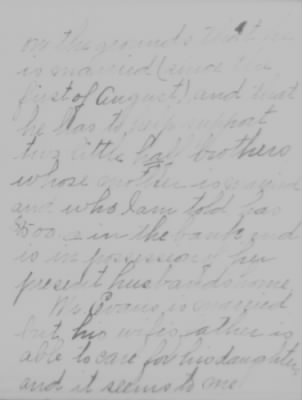 on the grounds that he
is married (since the
first of August) and that
he has to help support
two little half brothers
whose mother is married
and who I am told has
$500 in the bank and
is in possession of her
present husbands home.
Mr Evans is married
but his wifes father is
able to care for his daughter
and it seems to me